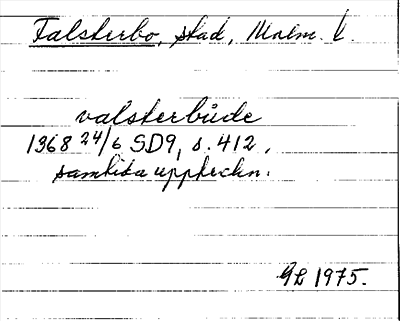 Falsterbo, stad, Malm. l.
valsterbüde
1368 24/6 SD9, s. 412,
samtida uppteckn.
GL 1975.